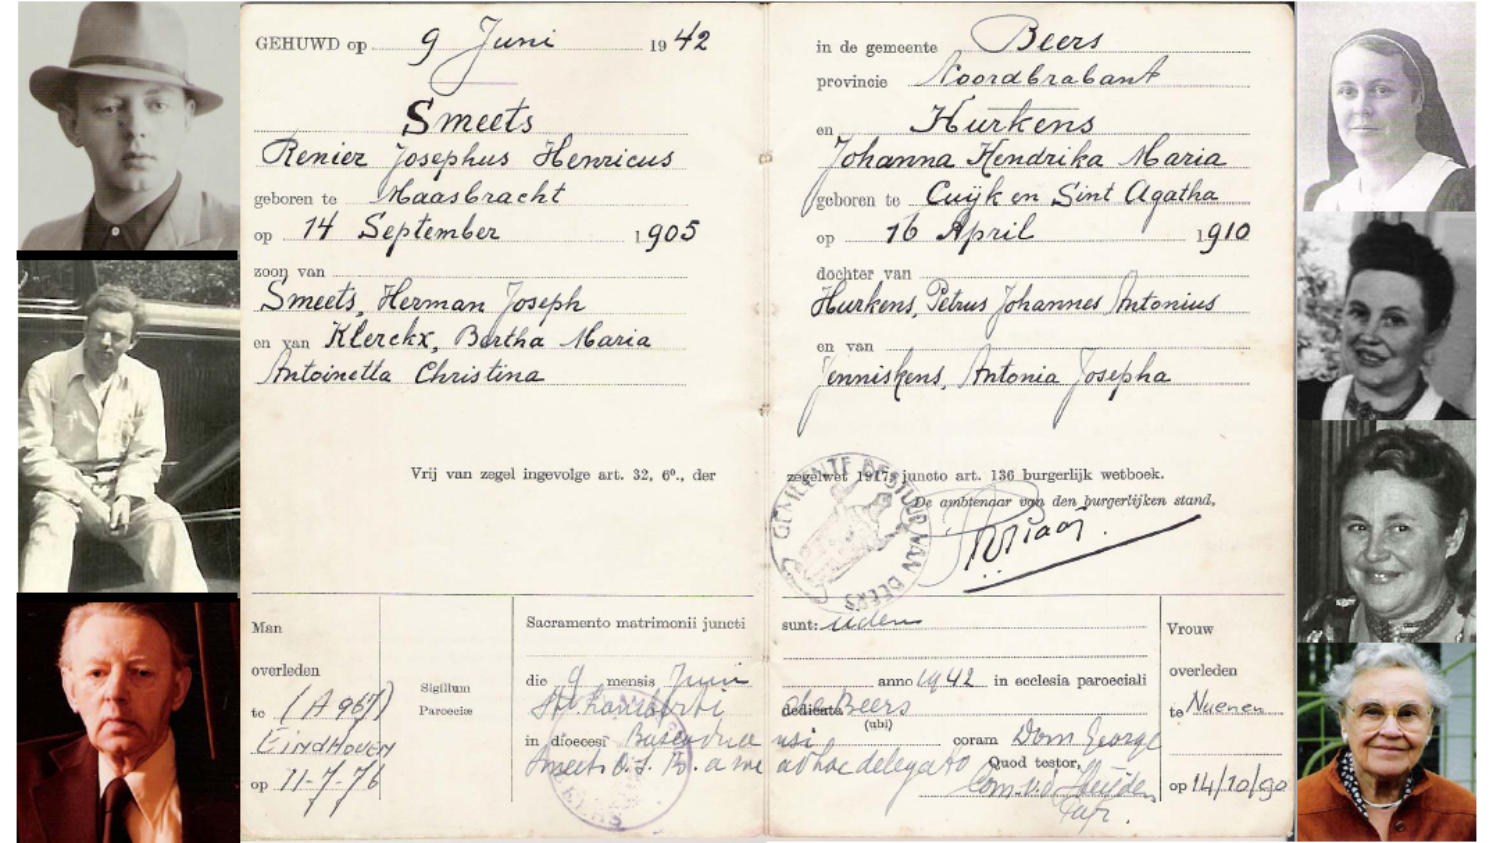 GEHUWD op 9 Juni 1942
Smeets
Renier Josephus Henricus
geboren te Maasbracht
op 14 September 1905
zoon van
Smeets, Herman Joseph
en van Klerckx, Bertha Maria
Antoinetta Christina
Vrij van zegel ingevolge art. 32, 6º., der
in de gemeente Beers
provincie Noordbrabant
en Hurkens
Johanna Hendrika Maria
geboren te Cuijk en Sint Agatha
op 16 April 1910
dochter van
Hurkens, Petrus Johannes Antonius
en van
Jenniskens, Antonia Josepha
zegelwet 1917, juncto art. 136 burgerlijk wetboek.
De ambtenaar van den burgerlijken stand,
GEMEENTE BESTUUR VAN BEERS
Man
overleden
te (A 967)
EINDHOVEN
op 11-7-76
Sigillum
Paroeciæ
Sacramento matrimonii juncti
die 9 mensis Juni
St Lamberti
in dioecesi Buscoducensi
Smeets O.S.B. a me ad hoc delegato
sunt:
anno 1942 in ecclesia paroeciali
dedicata Beers
(ubi)
coram Dom George
Quod testor,
Vrouw
overleden
te Nuenen
op 14/10/90